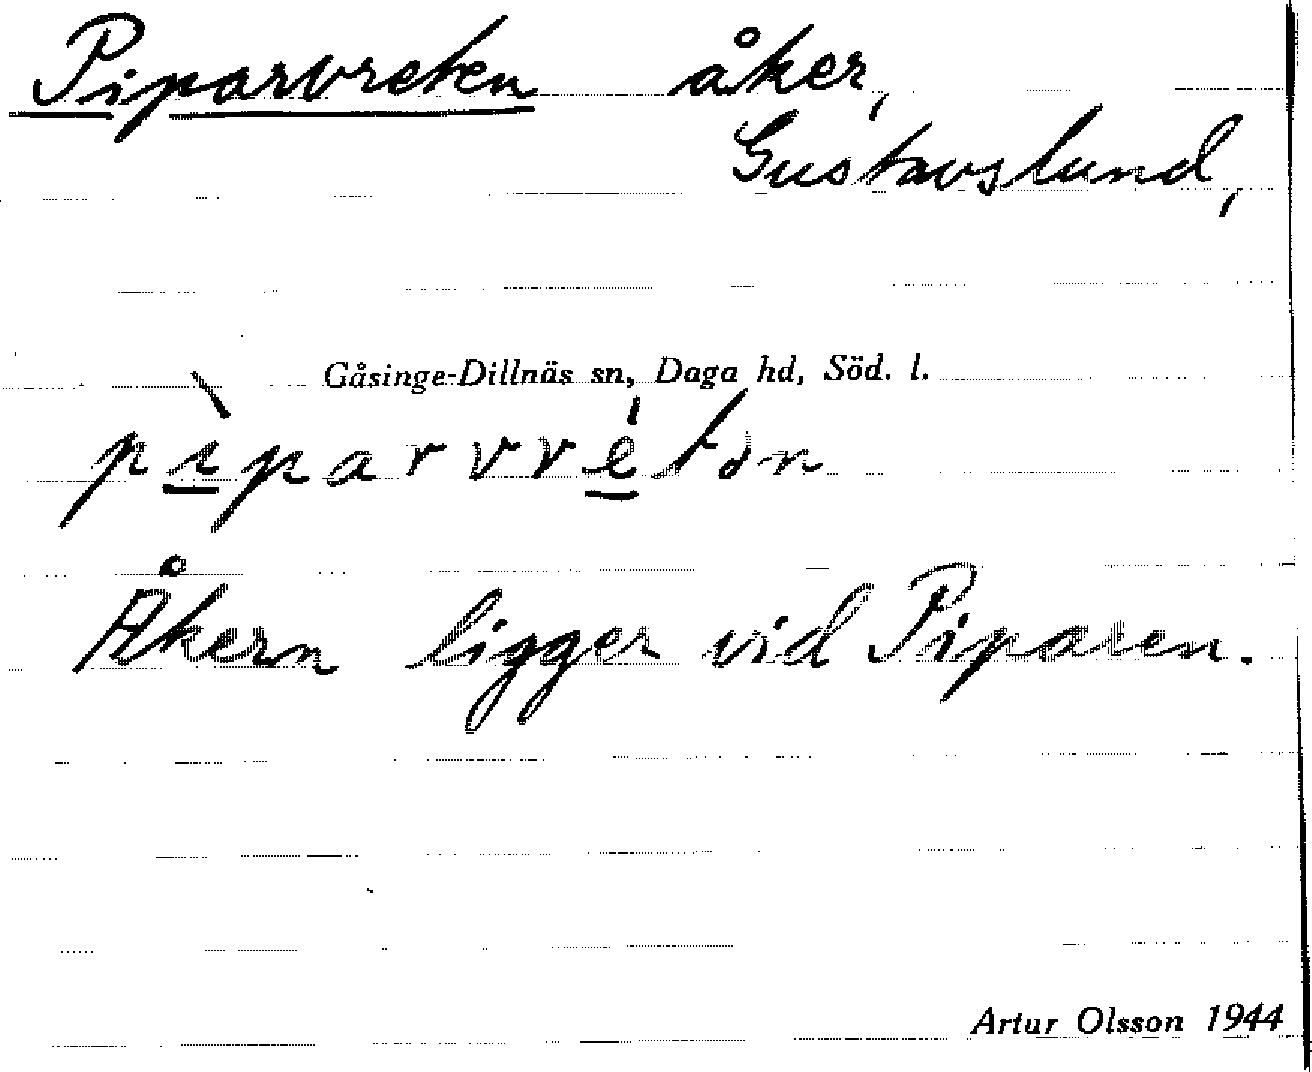 Piparvreten åker,
Gustavslund,
Gåsinge-Dillnäs sn, Daga hd, Söd. l.
pì̱parvré̱tən
Åkern ligger vid Piparen.
Artur Olsson 1944